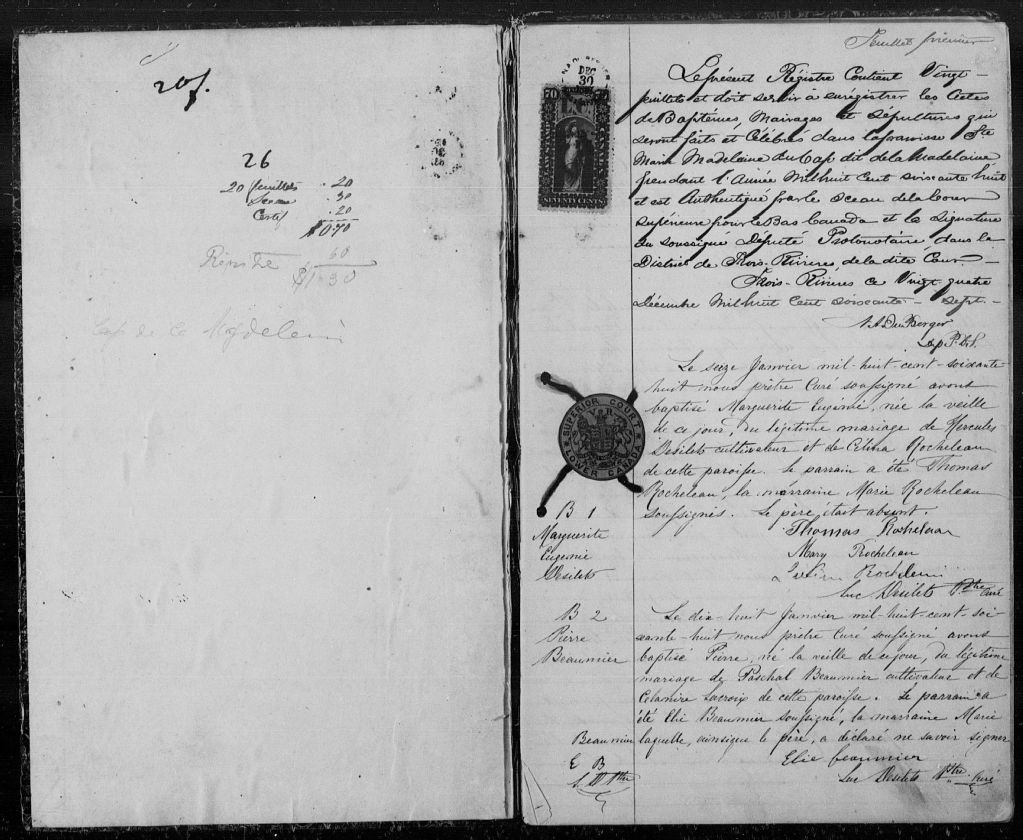 20f.
26
20 feuillets .20
Sceau .30
Certif .20
$0.70
60
$1.30
Cap de la Magdeleine
Feuillet premier
DEC
30
70 70
L.C.
SEVENTY CENTS
Le présent Régistre Contient Vingt
feuillets et doit servir à enrégistrer les Actes
de Baptêmes, Mariages et Sépultures qui
seront faits et Célébrés dans la paroisse Ste
Marie Madeleine du Cap dit de la Madelaine
pendant l'Année Mil huit Cent soixante huit
et est Authentiqué par le Sceau de la Cour
supérieure pour le Bas Canada et la Signature
du soussigné Député Protonotaire, dans le
District de Trois-Rivières, de la dite Cour.
Trois-Rivières ce Vingt quatre
Décembre Mil huit Cent soixante-sept-
Dep P.C.S.
SUPERIOR COURT
V R
LOWER CANADA
B 1
Marguerite
Eugénie
Desilets
Le seize Janvier mil-huit-cent-soixante
huit nous prêtre Curé soussigné avons
baptisé Marguerite Eugénie, née la veille
de ce jour, du légitime mariage de Hercule
Desilets cultivateur et de Célina Rocheleau
de cette paroisse. Le parrain a été Thomas
Rocheleau, la marraine Marie Rocheleau
soussignés. Le père était absent.
Thomas Rocheleau
Mary Rocheleau
Rocheleau
Luc Desilets Ptre Curé
B 2
Pierre
Beaumier
Le dix-huit Janvier mil-huit-cent-soi-
xante-huit nous prêtre Curé soussigné avons
baptisé Pierre, né la veille de ce jour, du légitime
mariage de Paschal Beaumier cultivateur et de
Célanire Lacroix de cette paroisse. Le parrain a
été Elie Beaumier soussigné, la marraine Marie
Beaumier laquelle, ainsi que le père, a déclaré ne savoir signer
E B
Elie beaumier
Luc Desilets Ptre Curé